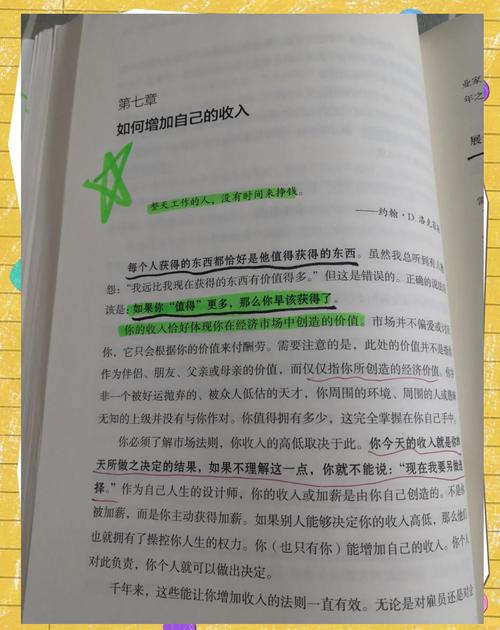 第七章
如何增加自己的收入
整天工作的人，没有时间来挣钱。
——约翰·D.洛克菲
每个人获得的东西都恰好是他值得获得的东西。虽然我总听到有人
怨：“我远比我现在获得的东西有价值得多。”但这是错误的。正确的说法
该是：如果你“值得”更多，那么你早该获得了。
你的收入恰好体现你在经济市场中创造的价值。市场并不偏爱或
你，它只会根据你的价值来付酬劳。需要注意的是，此处的价值并不是指
作为伴侣、朋友、父亲或母亲的价值，而仅仅指你所创造的经济价值。你
非一个被好运抛弃的、被众人低估的天才，你周围的环境、周围的人或
无知的上级并没有与你作对。你值得拥有多少，这完全掌握在你自己手中。
你必须了解市场法则，你收入的高低取决于此。你今天的收入就是你
天所做之决定的结果，如果不理解这一点，你就不能说：“现在我要另做
择。”作为自己人生的设计师，你的收入或加薪是由你自己创造的。不是你
被加薪，而是你主动获得加薪。如果别人能够决定你的收入高低，那么他们
也就拥有了操控你人生的权力。你（也只有你）能增加自己的收入。你个人
对此负责，你个人就可以做出决定。
千年来，这些能让你增加收入的法则一直有效。无论是对雇员还是对企
业家
年之
展